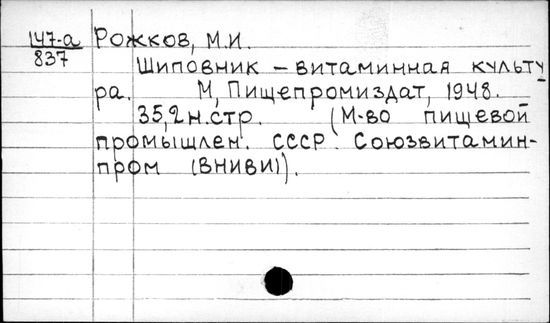 147-а Рожков, М.И.
837
Шиповник – витаминная культу
ра. М, Пищепромиздат, 1948.
35,2н.стр. (М-во пищевой
промышлен. СССР. Союзвитамин-
пром (ВНИВИ)).